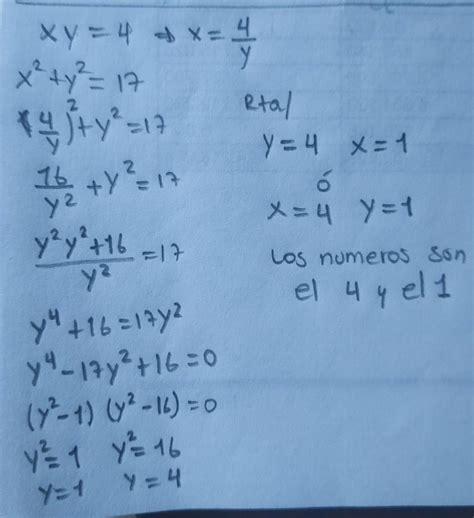 xy = 4 ⇒ x = 4/y
x² + y² = 17
(4/y)² + y² = 17
16/y² + y² = 17
(y²y² + 16)/y² = 17
y⁴ + 16 = 17y²
y⁴ - 17y² + 16 = 0
(y² - 1) (y² - 16) = 0
y² = 1 y² = 16
y = 1 y = 4
Rta/
y = 4 x = 1
ó
x = 4 y = 1
Los numeros son
el 4 y el 1